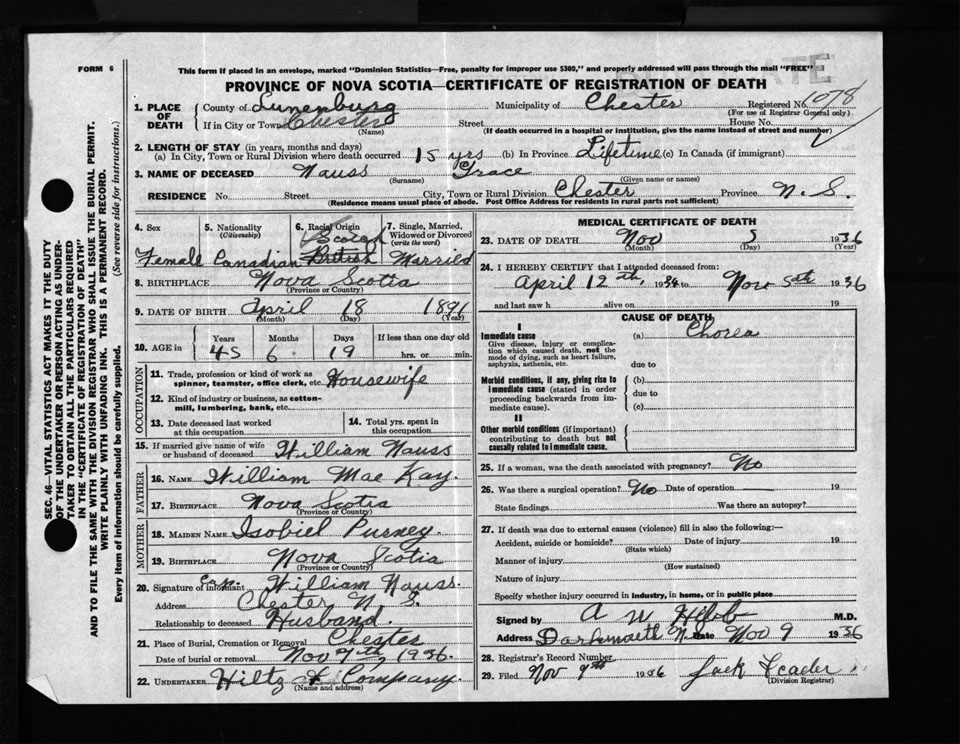 FORM 6
This form if placed in an envelope, marked "Dominion Statistics—Free, penalty for improper use $300," and properly addressed will pass through the mail "FREE"
PROVINCE OF NOVA SCOTIA—CERTIFICATE OF REGISTRATION OF DEATH
1. PLACE OF DEATH
County of Lunenburg Municipality of Chester Registered No. 1078
(For use of Registrar General only)
If in City or Town Chester Street House No.
(Name) (If death occurred in a hospital or institution, give the name instead of street and number)
2. LENGTH OF STAY (in years, months and days)
(a) In City, Town or Rural Division where death occurred 15 yrs (b) In Province Lifetime (c) In Canada (if immigrant)
3. NAME OF DECEASED Nauss Grace
(Surname) (Given name or names)
RESIDENCE No. Street City, Town or Rural Division Chester Province N. S.
(Residence means usual place of abode. Post Office Address for residents in rural parts not sufficient)
4. Sex 5. Nationality (Citizenship) 6. Racial Origin 7. Single, Married, Widowed or Divorced (write the word)
Female Canadian British Married
8. BIRTHPLACE Nova Scotia
(Province or Country)
9. DATE OF BIRTH April 18 1891
(Month) (Day) (Year)
10. AGE in Years Months Days If less than one day old
45 6 19 hrs. or min.
OCCUPATION
11. Trade, profession or kind of work as spinner, teamster, office clerk, etc. Housewife
12. Kind of industry or business, as cotton-mill, lumbering, bank, etc.
13. Date deceased last worked at this occupation
14. Total yrs. spent in this occupation
15. If married give name of wife or husband of deceased William Nauss
FATHER
16. NAME William Mac Kay
17. BIRTHPLACE Nova Scotia
(Province or Country)
MOTHER
18. MAIDEN NAME Isobiel Purney
19. BIRTHPLACE Nova Scotia
(Province or Country)
20. Signature of informant Cap. William Nauss.
Address Chester N. S.
Relationship to deceased Husband.
21. Place of Burial, Cremation or Removal Chester
Date of burial or removal Nov 7th, 1936
22. UNDERTAKER Hiltz & Company.
(Name and address)
MEDICAL CERTIFICATE OF DEATH
23. DATE OF DEATH Nov 5 1936
(Month) (Day) (Year)
24. I HEREBY CERTIFY that I attended deceased from:
April 12th, 1934 to Nov 5th 1936
and last saw h alive on 19
CAUSE OF DEATH
I
Immediate cause (a) Chorea
Give disease, injury or complication which caused death, not the mode of dying, such as heart failure, asphyxia, asthenia, etc.
due to
Morbid conditions, if any, giving rise to immediate cause (stated in order proceeding backwards from immediate cause).
(b)
due to
(c)
II
Other morbid conditions (if important) contributing to death but not causally related to immediate cause.
25. If a woman, was the death associated with pregnancy? No
26. Was there a surgical operation? No Date of operation 19
State findings Was there an autopsy?
27. If death was due to external causes (violence) fill in also the following:—
Accident, suicide or homicide? Date of injury 19
(State which)
Manner of injury
(How sustained)
Nature of injury
Specify whether injury occurred in industry, in home, or in public place
Signed by A W Hebb M.D.
Address Dartmouth N. Date Nov 9 1936
28. Registrar's Record Number
29. Filed Nov 9th 1936 Jack Leader
(Division Registrar)
SEC. 46—VITAL STATISTICS ACT MAKES IT THE DUTY
OF THE UNDERTAKER OR PERSON ACTING AS UNDER-
TAKER TO OBTAIN ALL THE PARTICULARS REQUIRED
IN THE "CERTIFICATE OF REGISTRATION OF DEATH"
AND TO FILE THE SAME WITH THE DIVISION REGISTRAR WHO SHALL ISSUE THE BURIAL PERMIT.
WRITE PLAINLY WITH UNFADING INK. THIS IS A PERMANENT RECORD.
Every item of information should be carefully supplied. (See reverse side for instructions.)